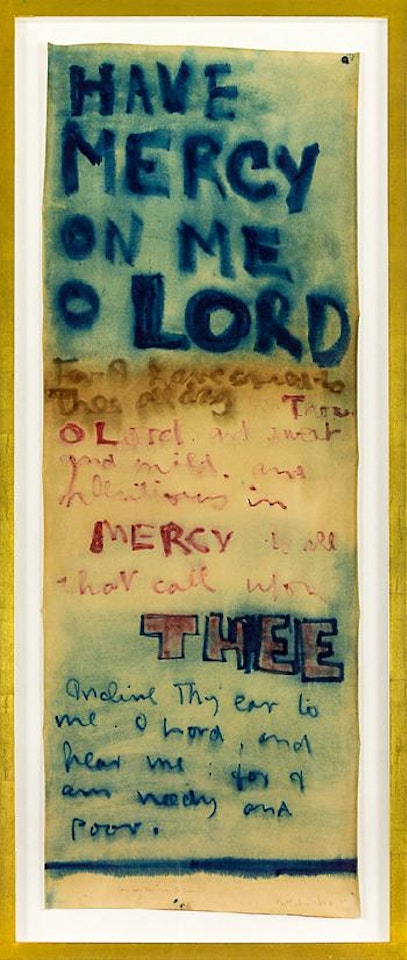 HAVE
MERCY
ON ME
O LORD
For I have cried to
Thee all day Thou
O Lord. art sweet
and mild. and
plenteous in
MERCY to all
that call upon
THEE
Incline Thy ear to
me. O Lord, and
hear me : for I
am needy and
poor.